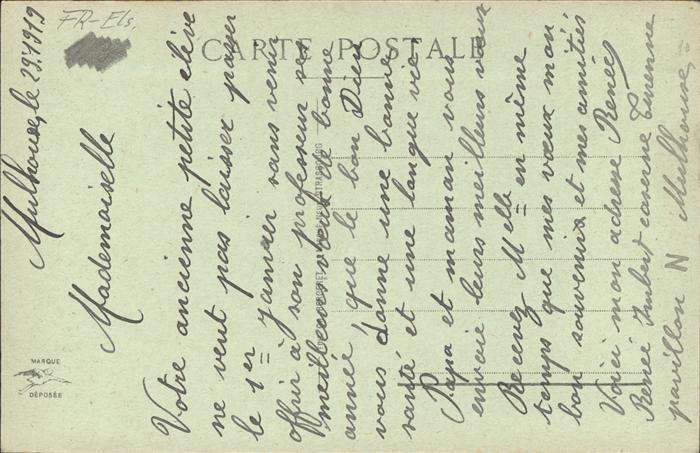 FR-Els.
CARTE POSTALE
MARQUE
DÉPOSÉE
Mulhouse, le 29.7.1919
Mademoiselle
Votre ancienne petite élève
ne veut pas laisser passer
le 1er Janvier sans venir
offrir à son professeur ses
meilleurs vœux de bonne
année, que le bon Dieu
vous donne une bonne
santé et une longue vie
Papa et maman vous
envoie leurs meilleurs vœux
Recevez Melle en même
temps que mes vœux mon
bon souvenir et mes amitiés
Voici mon adresse Renée
Renée Imbert caserne Turenne
pavillon N Mulhouse